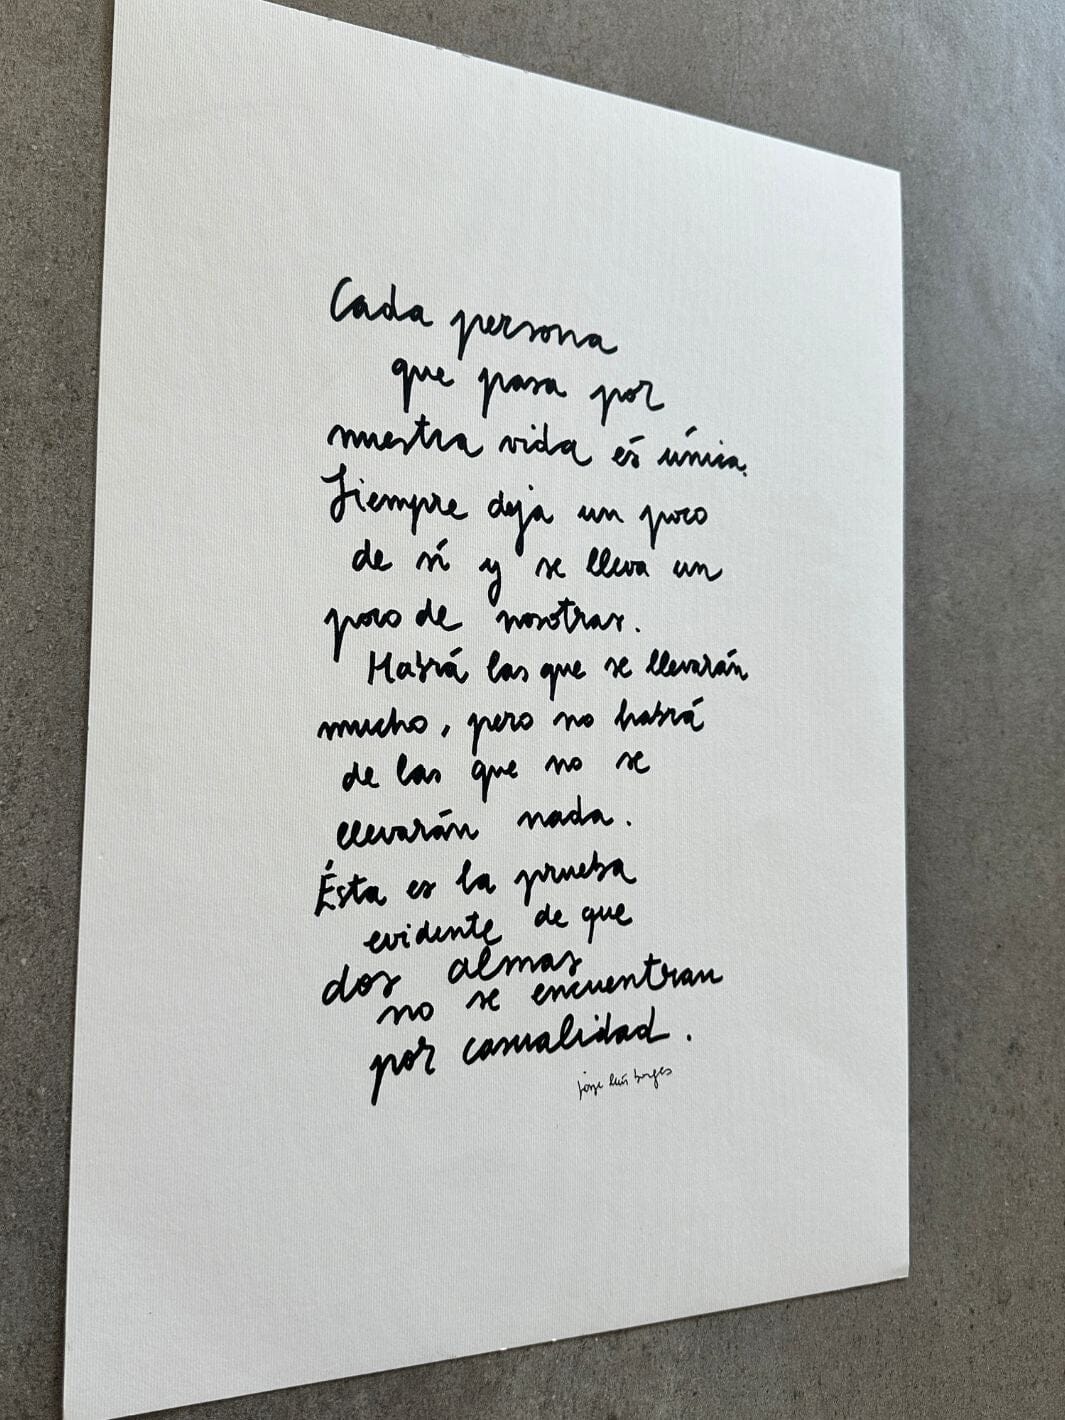 Cada persona
que pasa por
nuestra vida es única.
Siempre deja un poco
de sí y se lleva un
poco de nosotras.
Habrá las que se llevarán
mucho, pero no habrá
de las que no se
llevarán nada.
Ésta es la prueba
evidente de que
dos almas
no se encuentran
por casualidad.
jorge luis borges